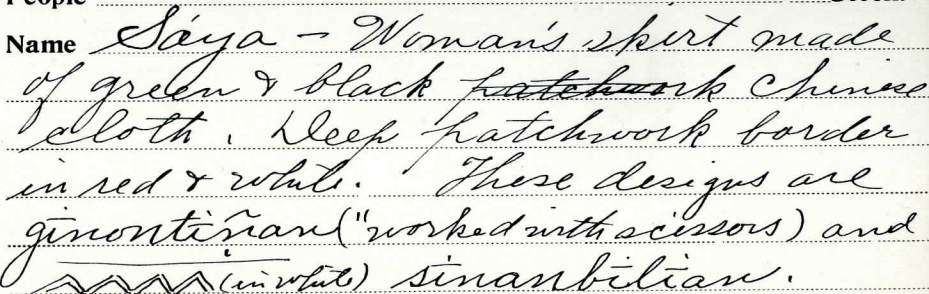 Name Sáya - Woman's skirt made
of green & black patchwork Chinese
cloth. Deep patchwork border
in red & white. These designs are
ginontiñan ("worked with scissors) and
(in white) sinanbilian.